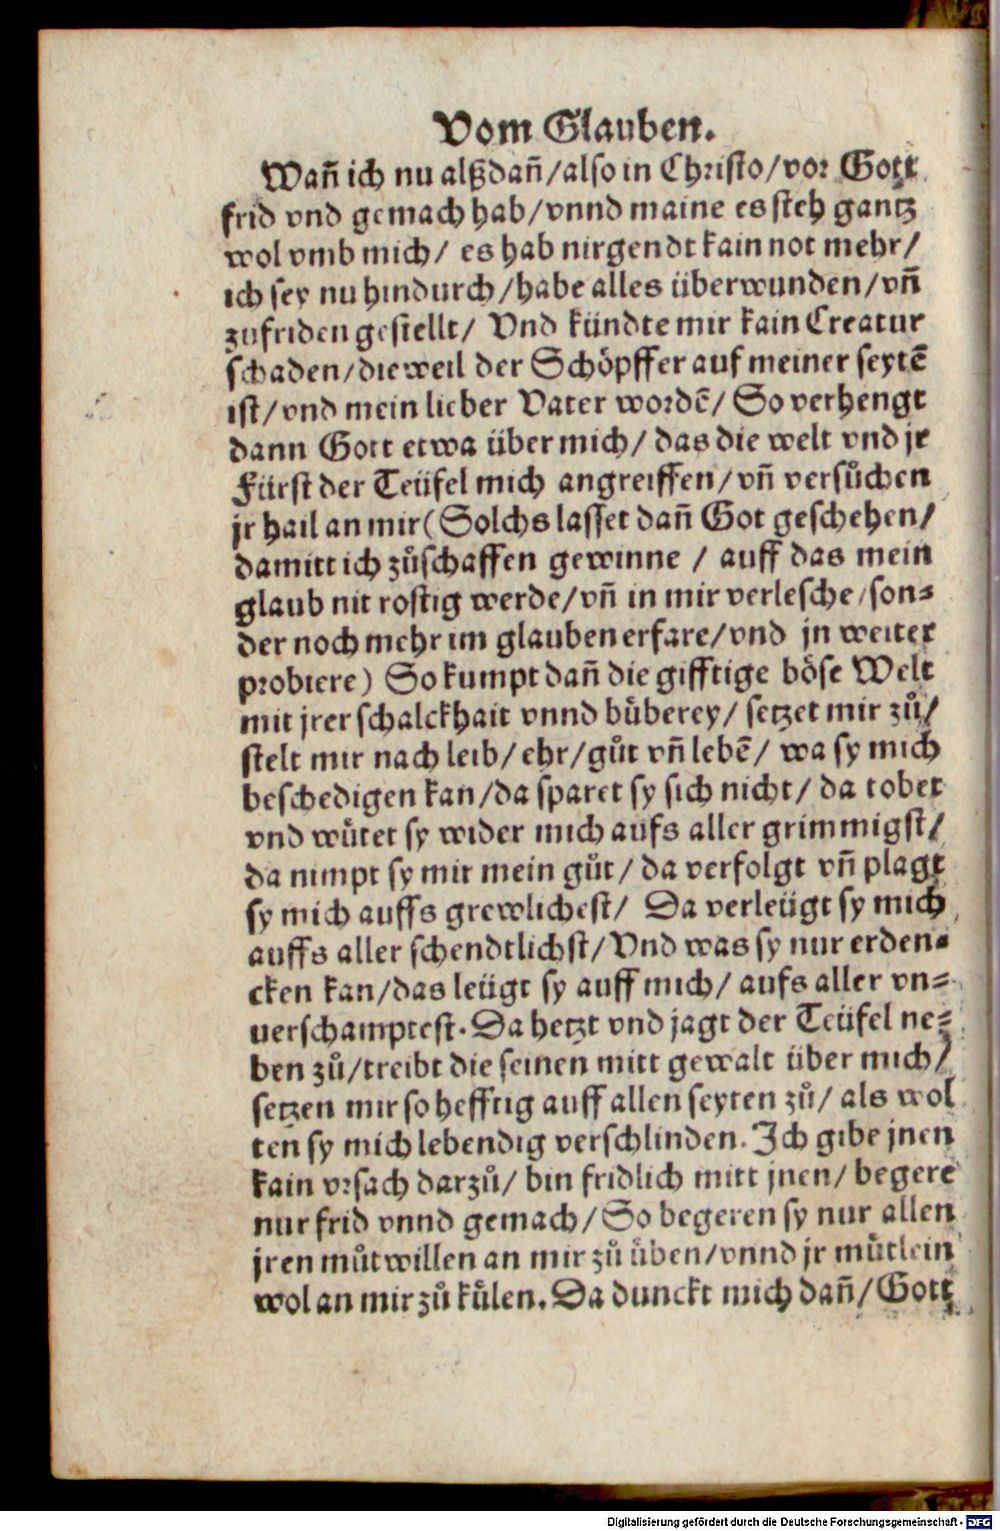 Vom Glauben.
Wañ ich nu alßdañ/also in Christo/vor Gott
frid vnd gemach hab/vnnd maine es steh gantz
wol vmb mich/ es hab nirgendt kain not mehr/
ich sey nu hindurch/habe alles überwunden/vñ
zufriden gestellt/ Vnd kündte mir kain Creatur
schaden/dieweil der Schöpffer auf meiner seytē
ist/vnd mein lieber Vater wordē/ So verhengt
dann Gott etwa über mich/ das die welt vnd jr
Fürst der Teüfel mich angreiffen/vñ versůchen
jr hail an mir(Solchs lasset dañ Got geschehen/
damitt ich zůschaffen gewinne / auff das mein
glaub nit rostig werde/vñ in mir verlesche/son⸗
der noch mehr im glauben erfare/vnd jn weiter
probiere) So kumpt dañ die gifftige böse Welt
mit jrer schalckhait vnnd bůberey/ setzet mir zů/
stelt mir nach leib/ ehr/gůt vñ lebē/ wa sy mich
beschedigen kan/da sparet sy sich nicht/ da tobet
vnd wůtet sy wider mich aufs aller grimmigst/
da nimpt sy mir mein gůt/ da verfolgt vñ plagt
sy mich auffs grewlichest/ Da verleügt sy mich
auffs aller schendtlichst/Vnd was sy nur erden⸗
cken kan/das leügt sy auff mich/ aufs aller vn⸗
uerschamptest. Da hetzt vnd jagt der Teüfel ne⸗
ben zů/treibt die seinen mitt gewalt über mich/
setzen mir so hefftig auff allen seyten zů/ als wol
ten sy mich lebendig verschlinden. Ich gibe jnen
kain vrsach darzů/ bin fridlich mitt jnen/ begere
nur frid vnnd gemach/So begeren sy nur allen
jren můtwillen an mir zů üben/vnnd jr můtlein
wol an mir zů kůlen. Da dunckt mich dañ/Gott
Digitalisierung gefördert durch die Deutsche Forschungsgemeinschaft - DFG